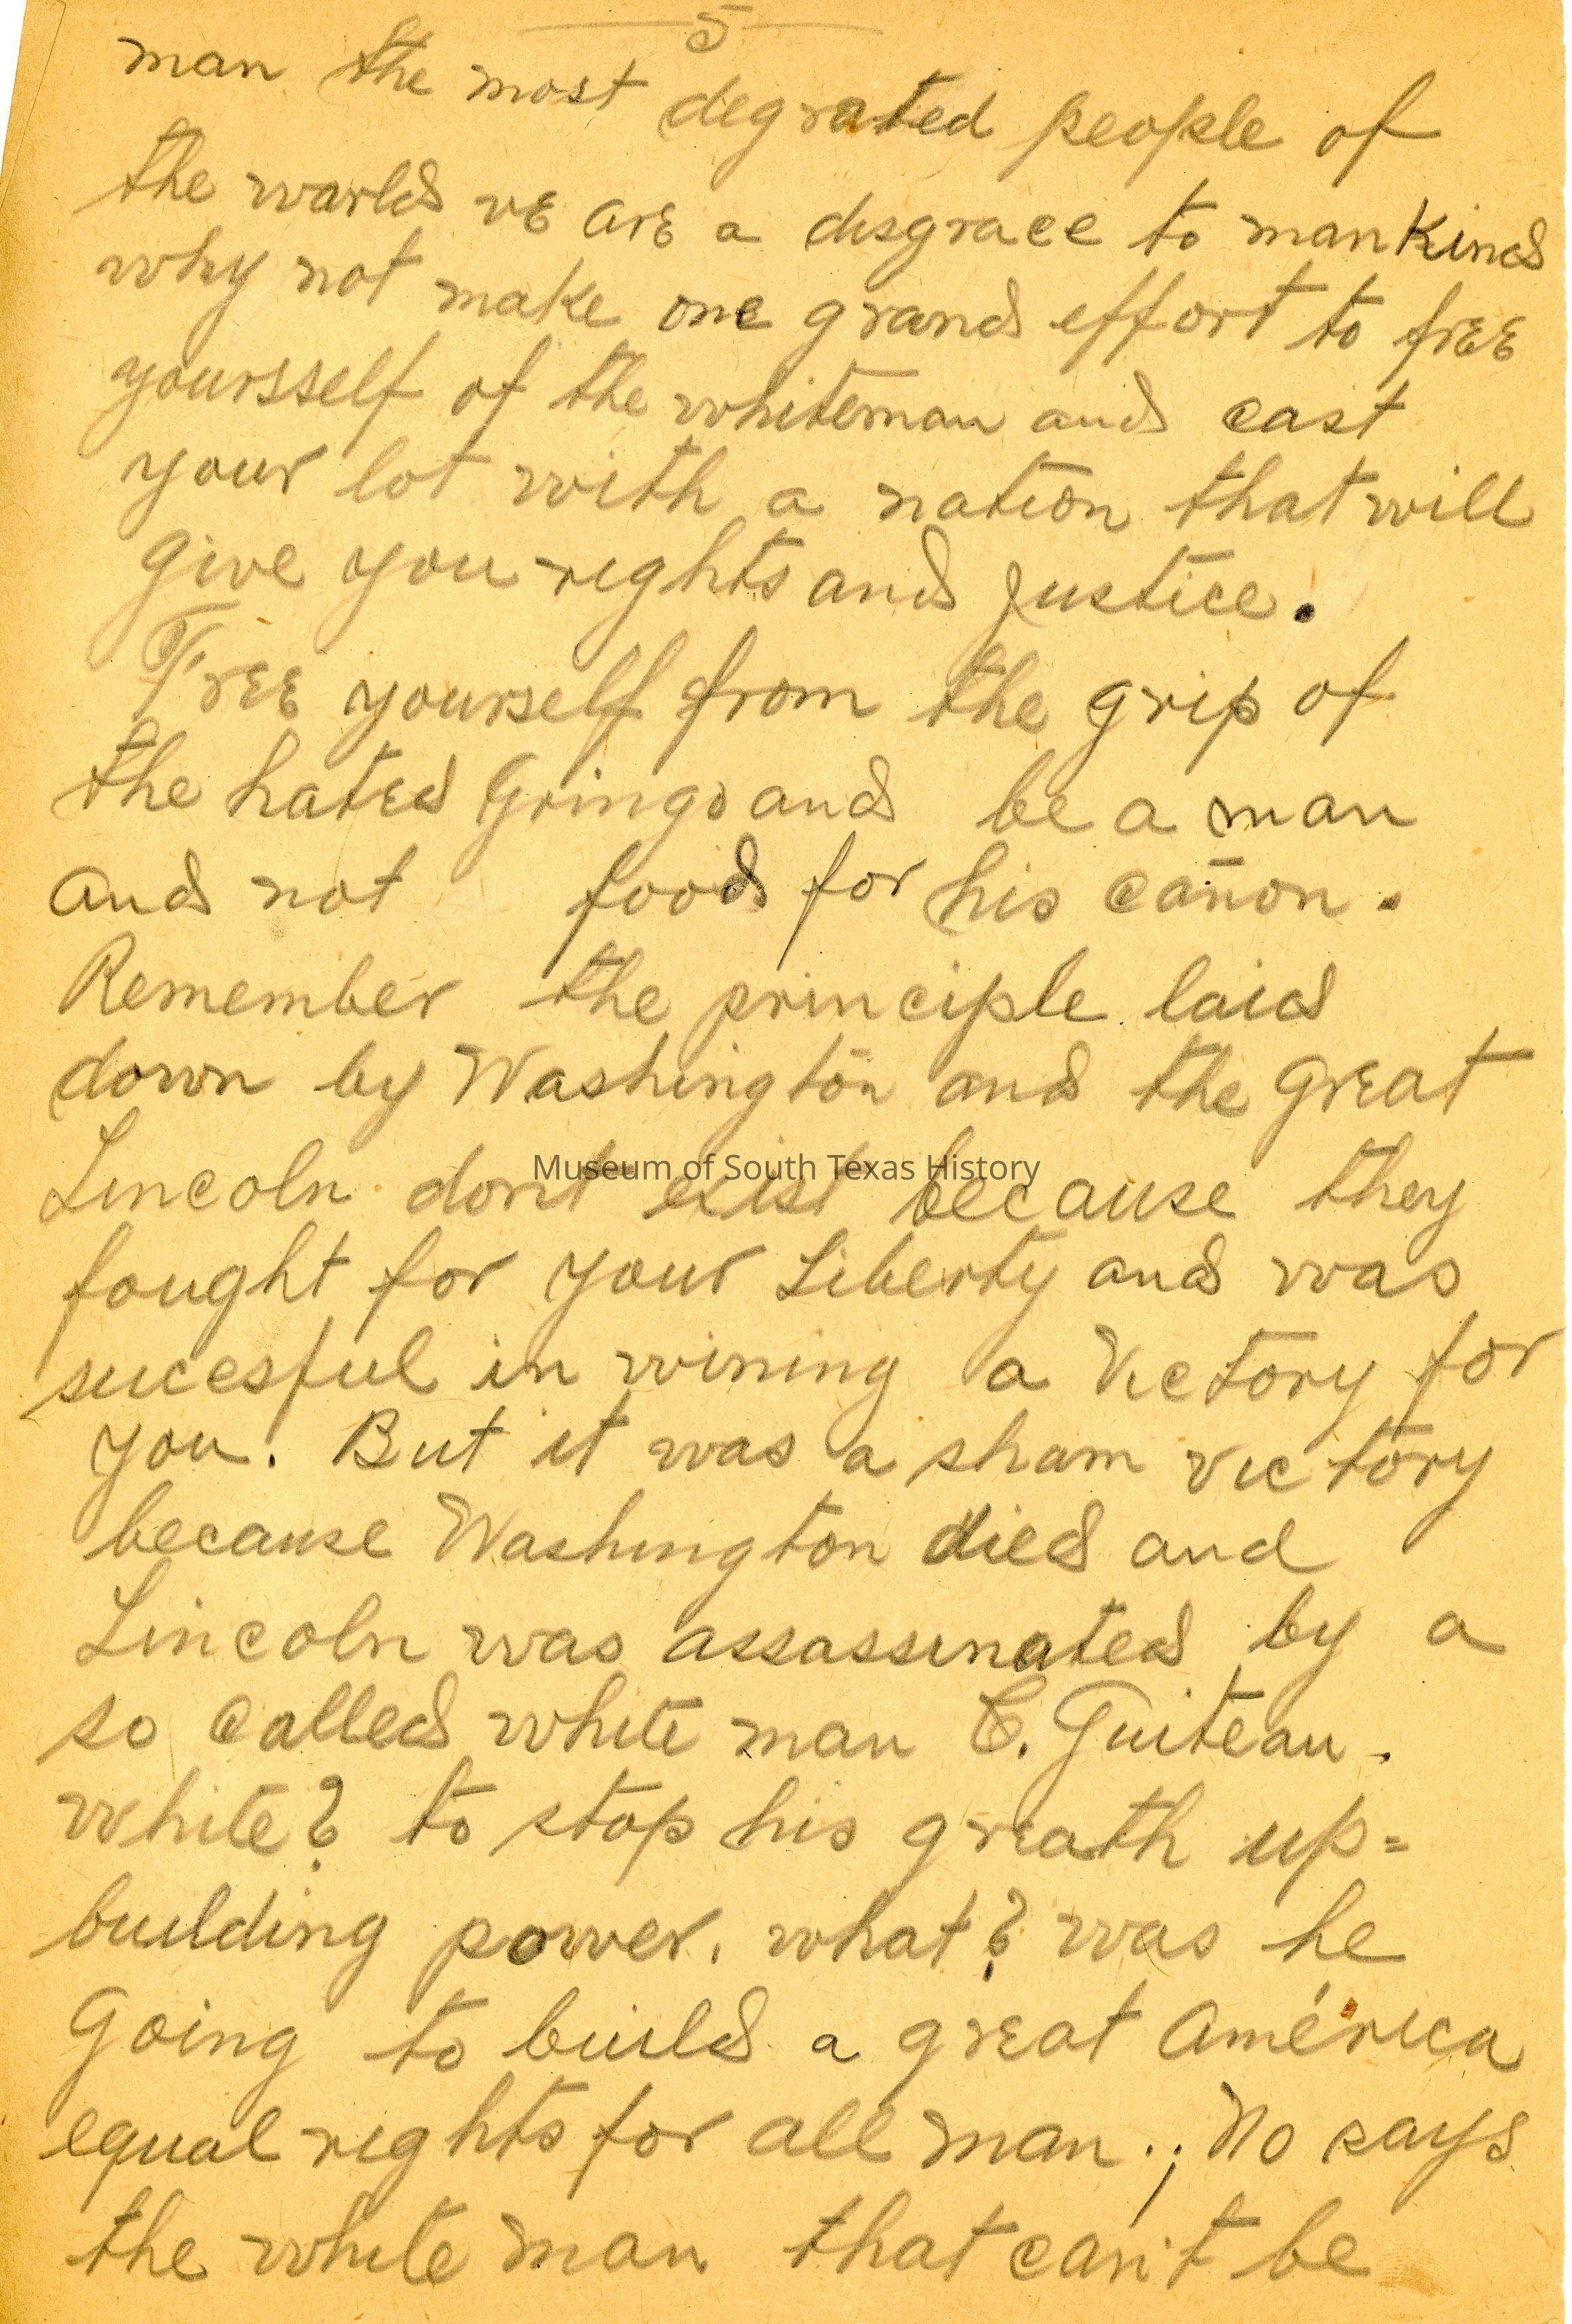 5
man the most degrated people of
the world vE arE a disgrace to manKind
why not make one grand effort to frEE
yoursself of the whiteman and cast
your lot with a nation that will
give you rights and justice.
FrEE yourself from the grip of
the hated Gringo and be a man
and not food for his cañon.
Remember the principle laid
down by Washington and the great
Lincoln dont exist because they
Museum of South Texas History
fought for your Liberty and was
sucesful in wining a Victory for
you. But it was a sham victory
because Washington died and
Lincoln was assassinated by a
so called white man C. Guiteau.
white? to stop his greath up=
building power. what? was he
Going to build a great América
equal rights for all man.; No says
the white man that can't be